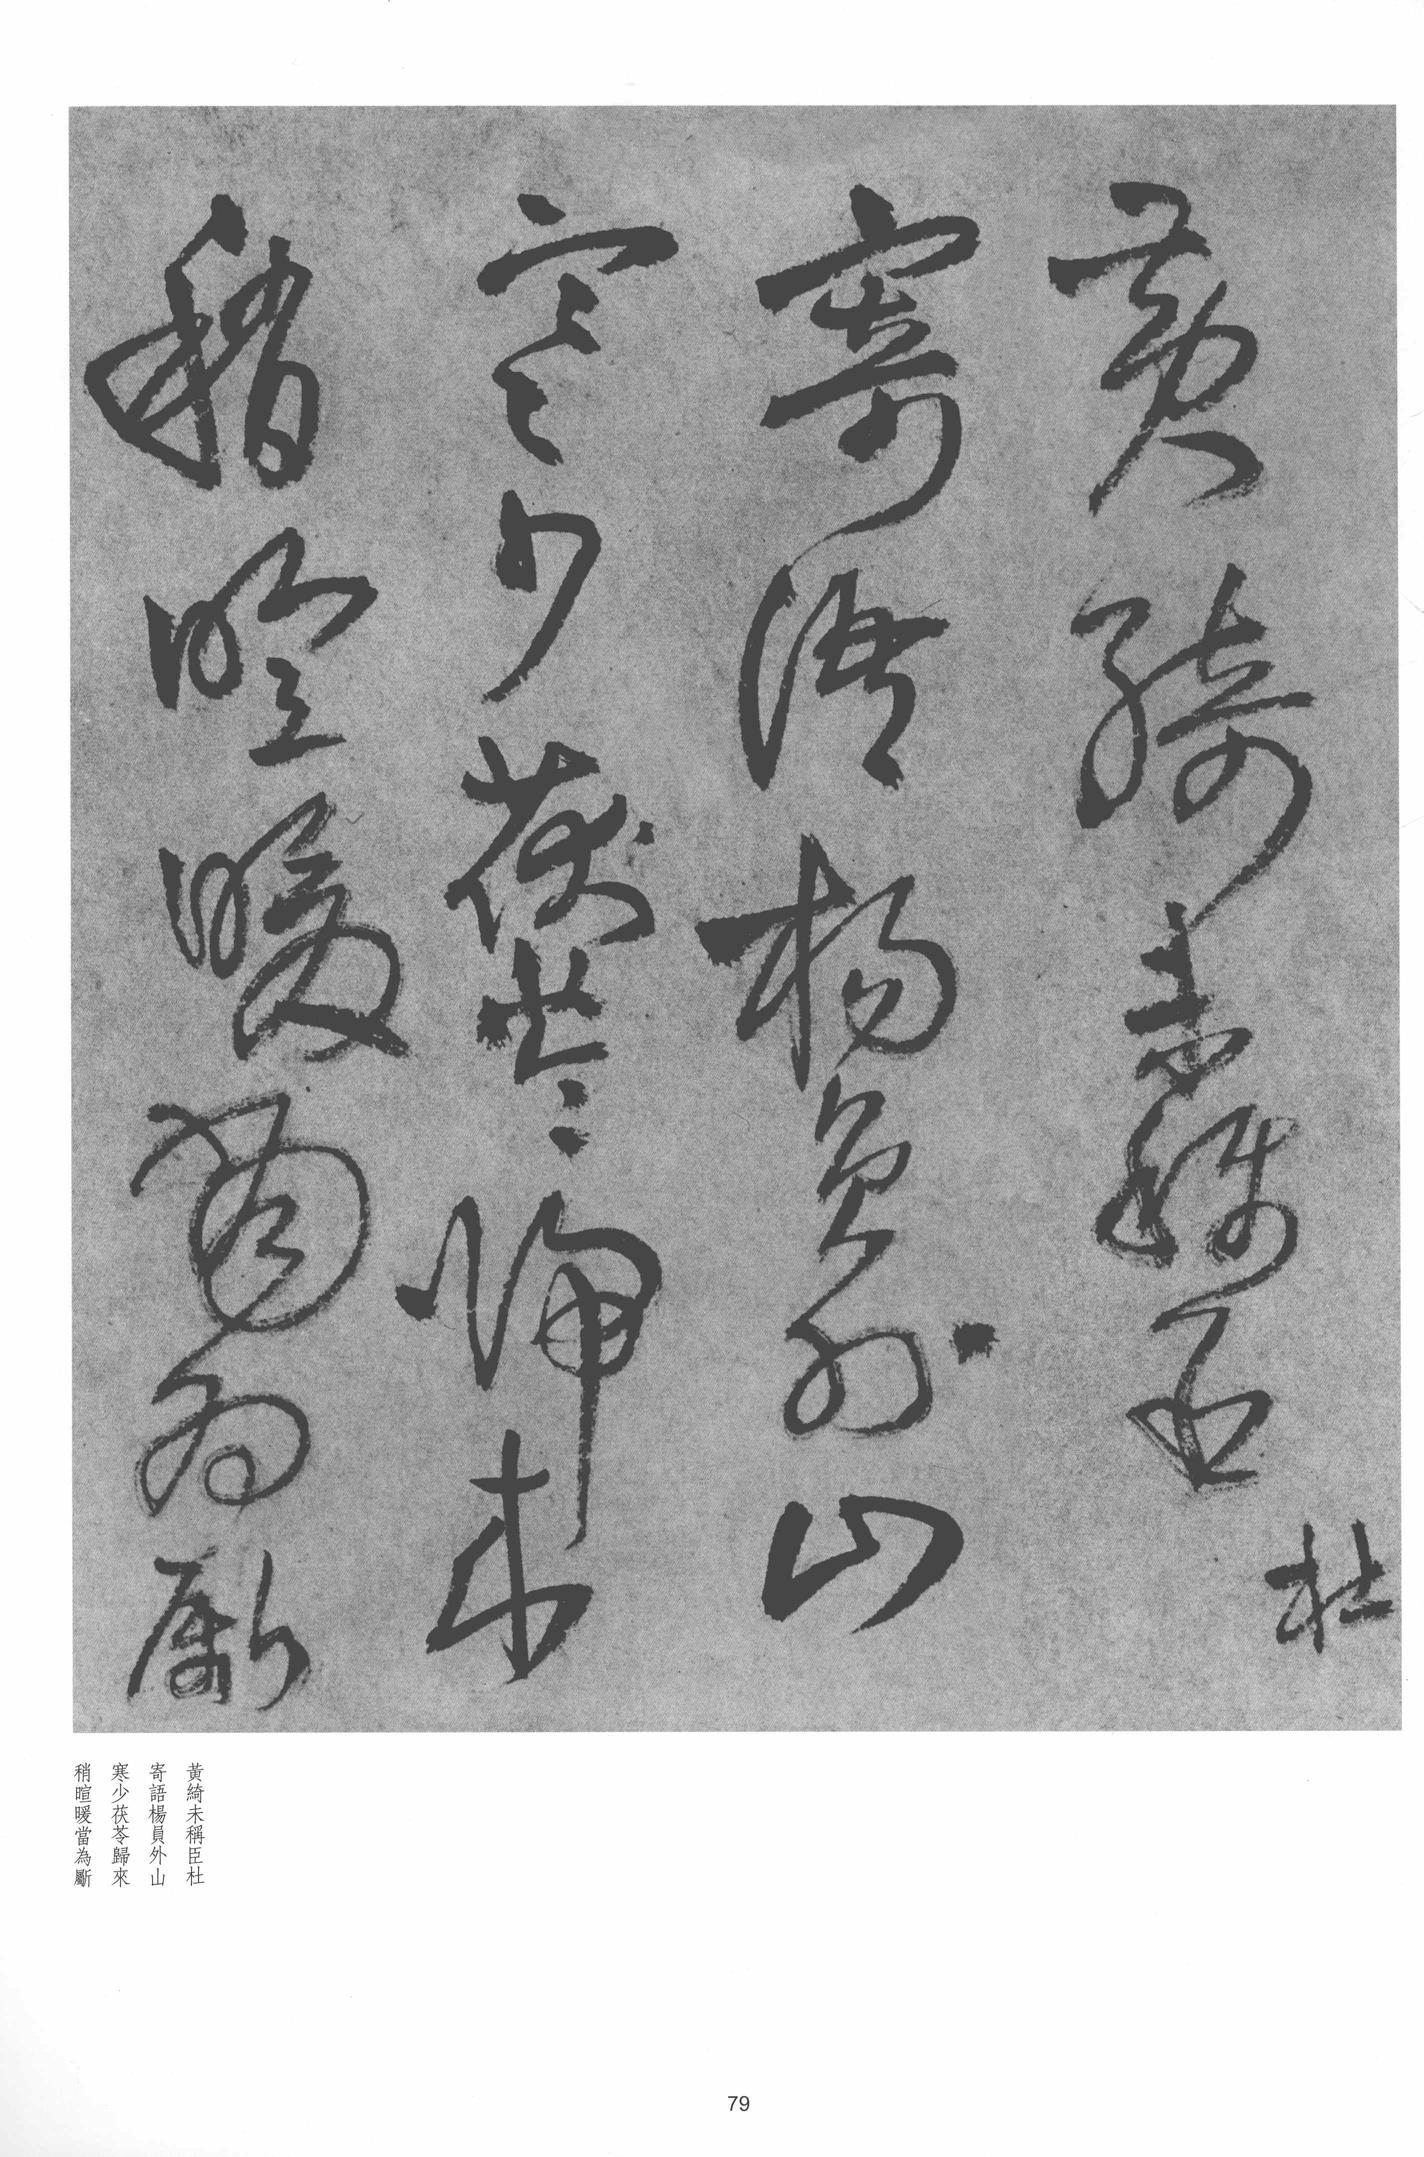 黃綺未稱臣杜
寄語楊員外山
寒少茯苓歸來
稍暄暖當為斸
黃綺未稱臣杜
寄語楊員外山
寒少茯苓歸來
稍暄暖當為斸
79